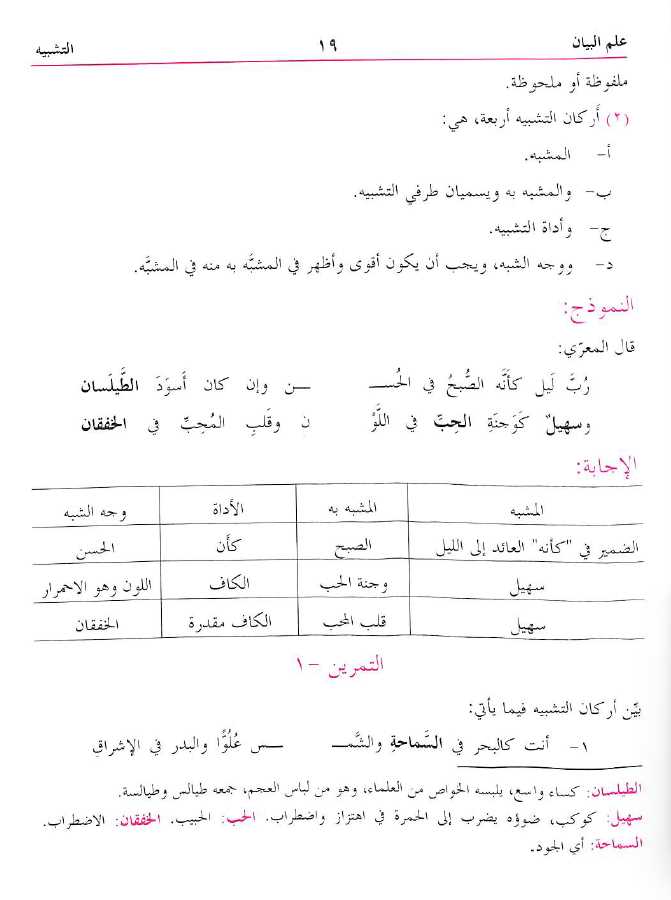 علم البيان ١٩ التشبيه
ملفوظة أو ملحوظة.
(٢) أَركان التشبيه أربعة، هي:
أ- المشبه.
ب- والمشبه به ويسميان طرفي التشبيه.
ج- وأداة التشبيه.
د- ووجه الشبه، ويجب أن يكون أقوى وأظهر في المشبَّه به منه في المشبَّه.
النموذج:
قال المعرّي:
رُبَّ لَيل كأنَّه الصُّبحُ في الحُسـ ـن وإن كان أسوَدَ الطَّيلَسان
وسهيلٌ كَوَجنَةِ الحِبِّ في اللَّوْ نِ وقَلبِ المُحِبِّ في الخفقان
الإجابة:
المشبه المشبه به الأداة وجه الشبه
الضمير في "كأنه" العائد إلى الليل الصبح كأن الحسن
سهيل وجنة الحب الكاف اللون وهو الاحمرار
سهيل قلب المحب الكاف مقدرة الخفقان
التمرين -١
بيِّن أركان التشبيه فيما يأتي:
١- أنت كالبحر في السَّماحةِ والشَّمـ ـس عُلُوًّا والبدر في الإشراقِ
الطيلسان: كساء واسع، يلبسه الخواص من العلماء، وهو من لباس العجم، جمعه طيالس وطيالسة.
سهيل: كوكب، ضوؤه يضرب إلى الحمرة في اهتزاز واضطراب. الحب: الحبيب. الخفقان: الاضطراب.
السماحة: أي الجود.